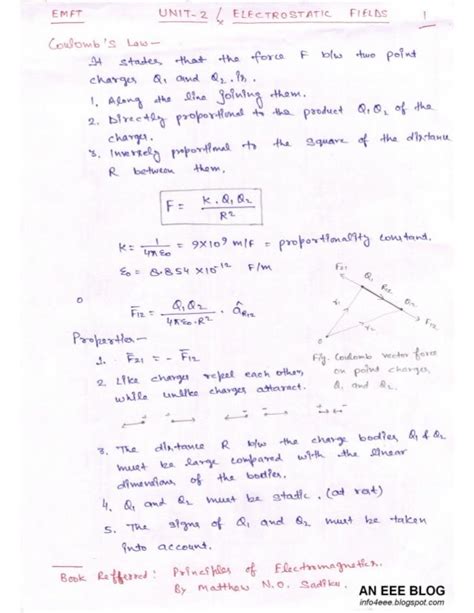 EMFT UNIT-2 ELECTROSTATIC FIELDS 1
Coulomb's Law –
It states that the force F b/w two point
charges Q1 and Q2 is.
1. Along the line joining them.
2. Directly proportional to the product Q1Q2 of the
charges.
3. Inversely proportional to the square of the distance
R between them.
F = K. Q1 Q2 / R²
K = 1/4πε0 = 9×10⁹ m/F = proportionality constant.
ε0 = 8.854 ×10⁻¹² F/m
F̄12 = Q1Q2 / 4πε0.R² . âR12
Properties –
1. F̄21 = - F̄12
2. Like charges repel each other,
while unlike charges attaract.
F21
Q1
R12
Q2
F12
r1
r2
0
Fig- Coulomb vector force
on point charges
Q1 and Q2.
3. The distance R b/w the charge bodies, Q1 & Q2
must be large compared with the linear
dimensions of the bodies.
4. Q1 and Q2 must be static. (at rest)
5. The signs of Q1 and Q2 must be taken
into account.
Book Refferred: Principles of Electromagnetics.
By Matthew N.O. Sadiku.
AN EEE BLOG
info4eee.blogspot.com